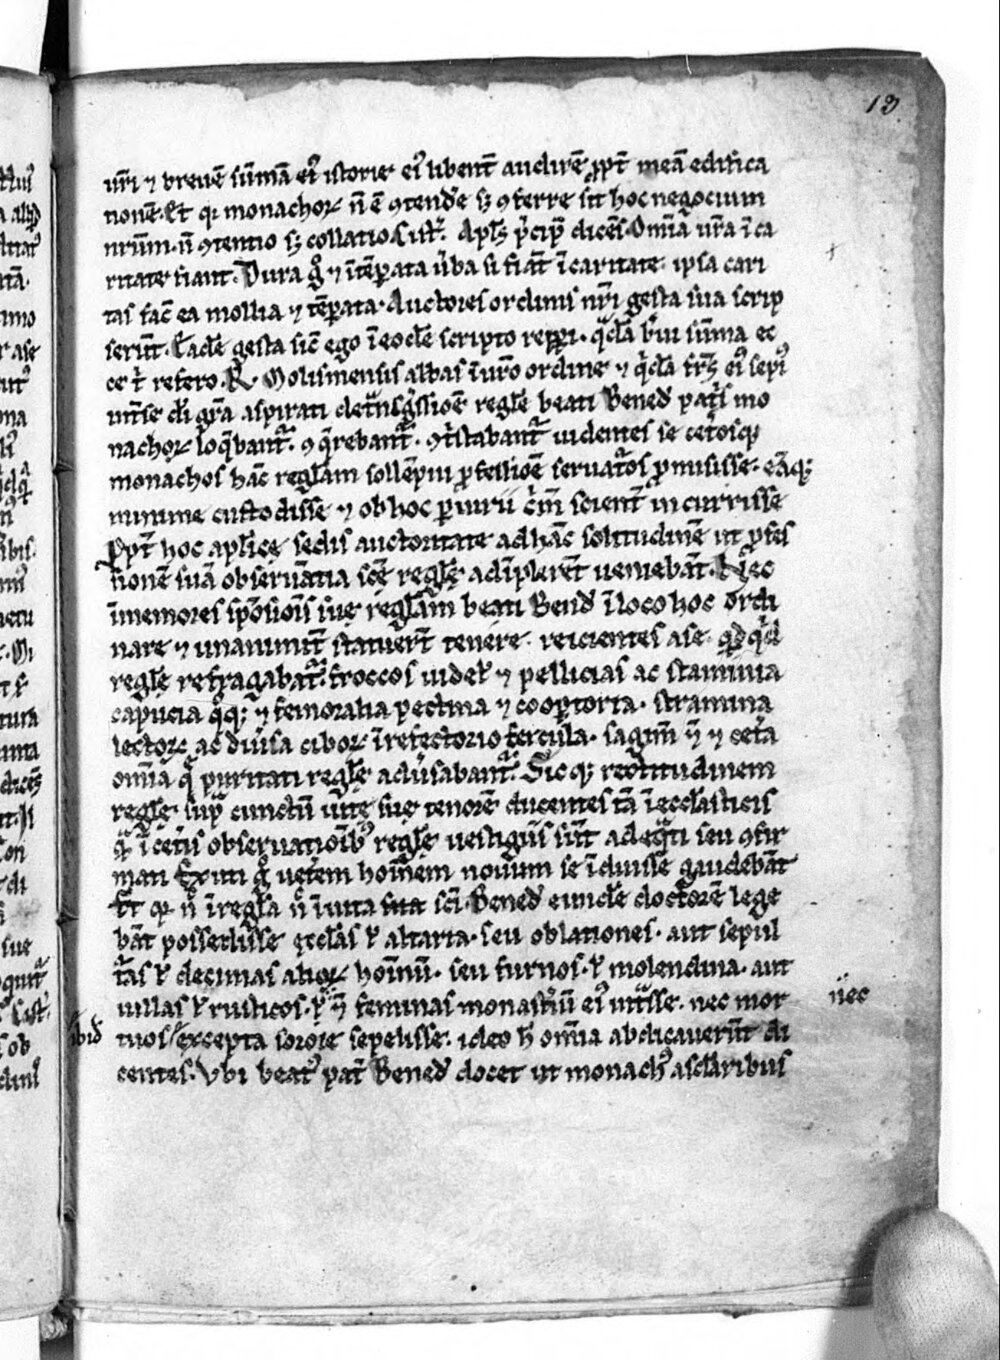 13
ur̄i ⁊ breuē sūmā eiꝰ istorie eiꝰ libent̄ audirē ꝓpt̄ meā edifica
tionē. Et qr monachoꝝ n̄ ē ꝯtend'e sꝫ ꝯferre sit hoc negocium
nr̄um. n̄ ꝯtentio sꝫ collatio. Cist̄. Apl's p̓cip̄ dicēs. Om̄ia ur̄a ī ca
ritate fiant. Dura g̊ ⁊ ītēꝑata ūba si fiāt ī caritate. ipsa cari
tas fac̄ ea mollia ⁊ tēꝑata. Auctores ordinis nr̄i gesta sua scrip
serūt. Eadē gesta sic̄ ego ī eodē scripto reꝑi. q̄dā b̄ui sūma ec
ce t̓ refero. R̄. Molismensis abbas ī ur̄o ordine ⁊ q̓dā fr̄s eiꝰ sepiꝰ
int̄ se di gr̄a aspirati de t̄nsg̓ssiōe regle beati Bened̄ patis mo
nachoꝝ loq̄bant̄. ꝯq̄rebant̄. ꝯt̓stabant̄ uidentes se cet̄osqꝫ
monachos hāc reglam sollēpni ꝓfessiōe seruat̄os ꝓmisisse. eāqꝫ
minime custodisse ⁊ ob hoc ꝑiurii c̓m̄ scient̄ incurrisse
ꝓpt̄ hoc aplice sedis auctoritate ad hāc solitudinē ut ꝓfes
sionē suā obseruātia scē regle adīplerēt ueniebāt. Nec
īmemores spōsiois sue reglam beati Bend̄ ī loco hoc ordi
nare ⁊ unanimit̄ statuer̄t tenere. reicientes a se qd̓ q̓d
regle refragabat̄. froccos uidel' ⁊ pellicias ac staminia
capucia q̊qꝫ ⁊ femoralia pectina ⁊ cooptoria. stramina
lectoꝝ ac diūsa ciboꝝ ī refectorio fercula. sagim̄ q̊ ⁊ cet̄a
om̄ia q̄ puritati regle adūsabant̄. Sicqꝫ rectitudinem
regle. suꝑ cunctū uite sue tenorē ducentes tā ī ecclasticis
q̄ ī cet̄is obseruatioībꝰ regle uestigiis sūt adeq̄ti seu ꝯfir
mati Exuti g̊ uet̄em hoīem nouum se īduisse gaudebāt
Et qr n̄ ī regla n̄ ī uita sua sci Bened̄ eundē doctorē lege
bāt possedisse ecclas ł altaria. seu oblationes. aut sepul
t̄as ł decimas alioꝝ hoīnū. seu furnos. ł molendina. aut
uillas ł rusticos. ł n̄ feminas monast̄iū eiꝰ int̄sse. nec mor
nec
tuos excepta sorore sepelisse. ideo h̄ om̄ia abdicauerūt di
ibid̄
centes. Vbi beatꝰ pat̄ Bened̄ docet ut monachꝰ a sclaribus